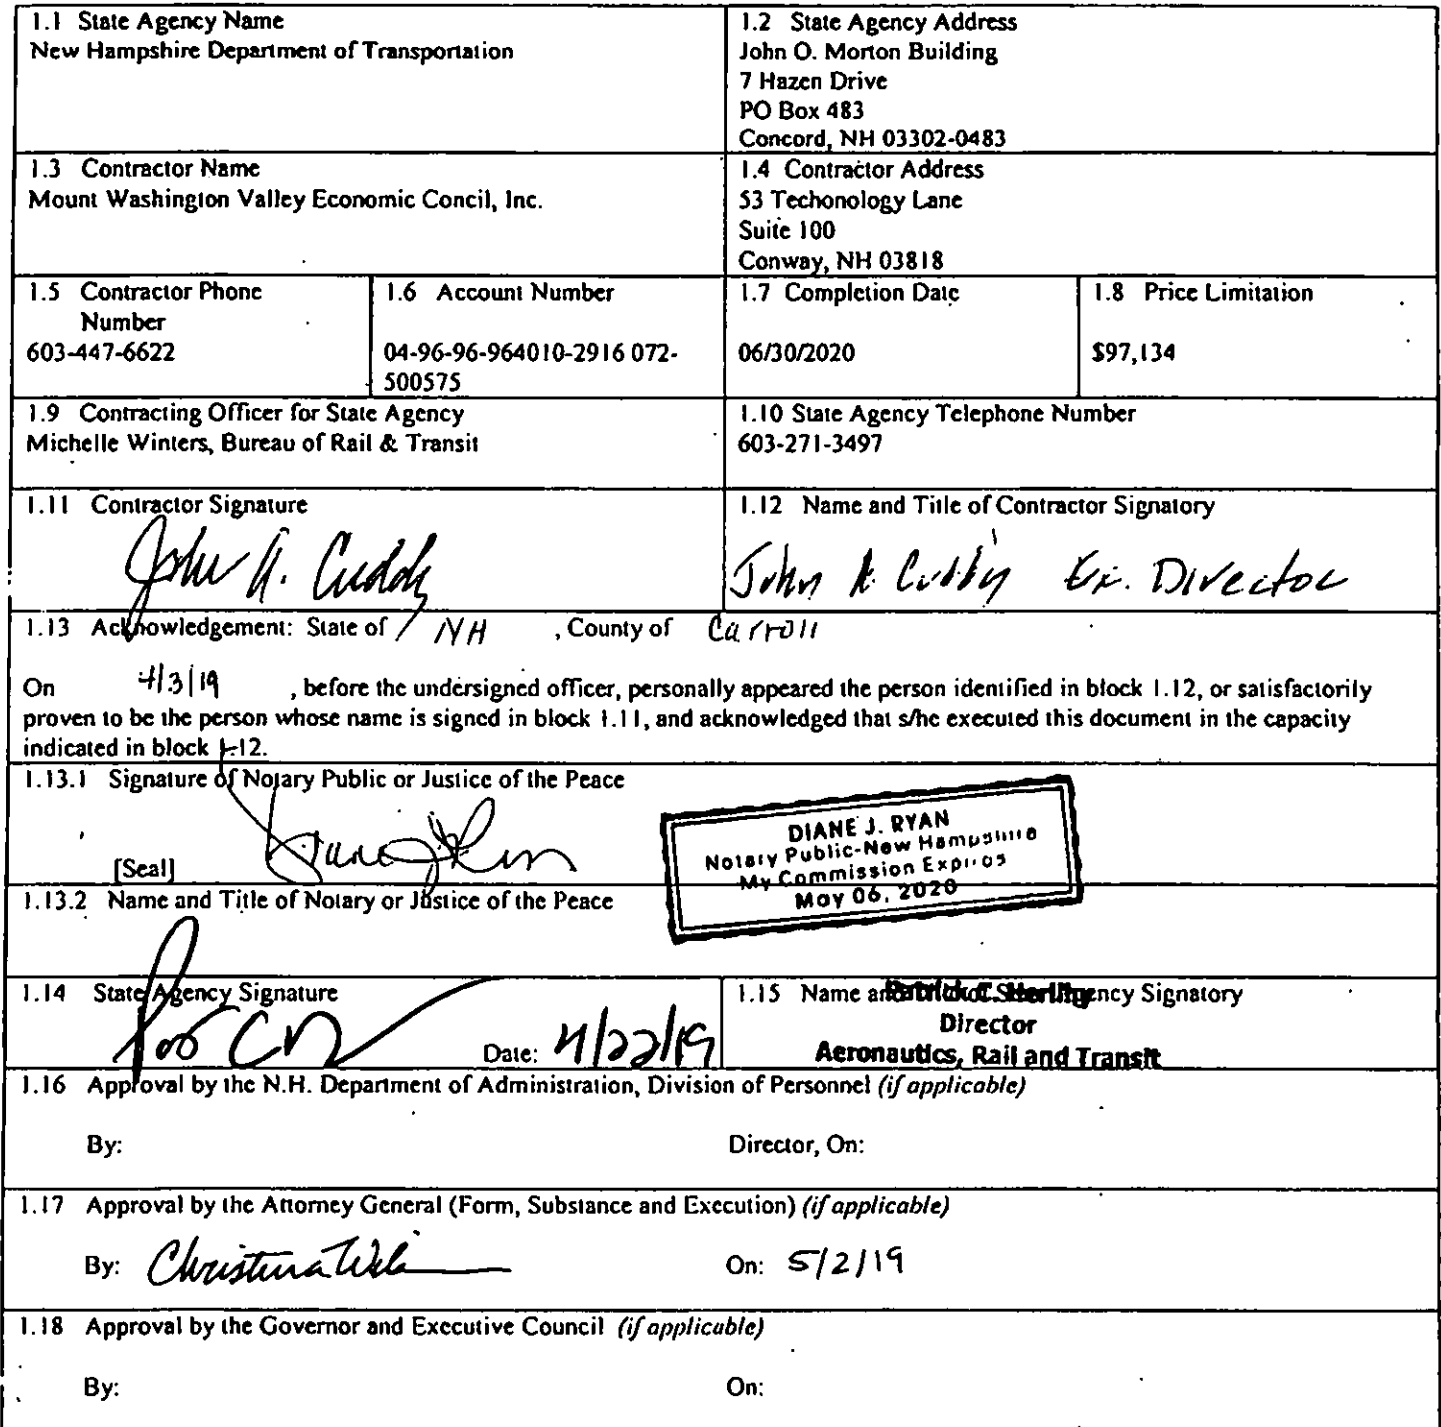 1.1 State Agency Name
New Hampshire Department of Transportation
1.2 State Agency Address
John O. Morton Building
7 Hazen Drive
PO Box 483
Concord, NH 03302-0483
1.3 Contractor Name
Mount Washington Valley Economic Concil, Inc.
1.4 Contractor Address
53 Techonology Lane
Suite 100
Conway, NH 03818
1.5 Contractor Phone
Number
603-447-6622
1.6 Account Number
04-96-96-964010-2916 072-
500575
1.7 Completion Date
06/30/2020
1.8 Price Limitation
$97,134
1.9 Contracting Officer for State Agency
Michelle Winters, Bureau of Rail & Transit
1.10 State Agency Telephone Number
603-271-3497
1.11 Contractor Signature
John A. Cuddy
1.12 Name and Title of Contractor Signatory
John A. Cuddy Ex. Director
1.13 Acknowledgement: State of NH , County of Carroll
On 4/3/19 , before the undersigned officer, personally appeared the person identified in block 1.12, or satisfactorily
proven to be the person whose name is signed in block 1.11, and acknowledged that s/he executed this document in the capacity
indicated in block 1.12.
1.13.1 Signature of Notary Public or Justice of the Peace
[Seal]
DIANE J. RYAN
Notary Public-New Hampshire
My Commission Expires
May 06, 2020
1.13.2 Name and Title of Notary or Justice of the Peace
1.14 State Agency Signature
Date: 4/22/19
1.15 Name and State Agency Signatory
Patrick C. Herlihy
Director
Aeronautics, Rail and Transit
1.16 Approval by the N.H. Department of Administration, Division of Personnel (if applicable)
By: Director, On:
1.17 Approval by the Attorney General (Form, Substance and Execution) (if applicable)
By: Christina On: 5/2/19
1.18 Approval by the Governor and Executive Council (if applicable)
By: On: